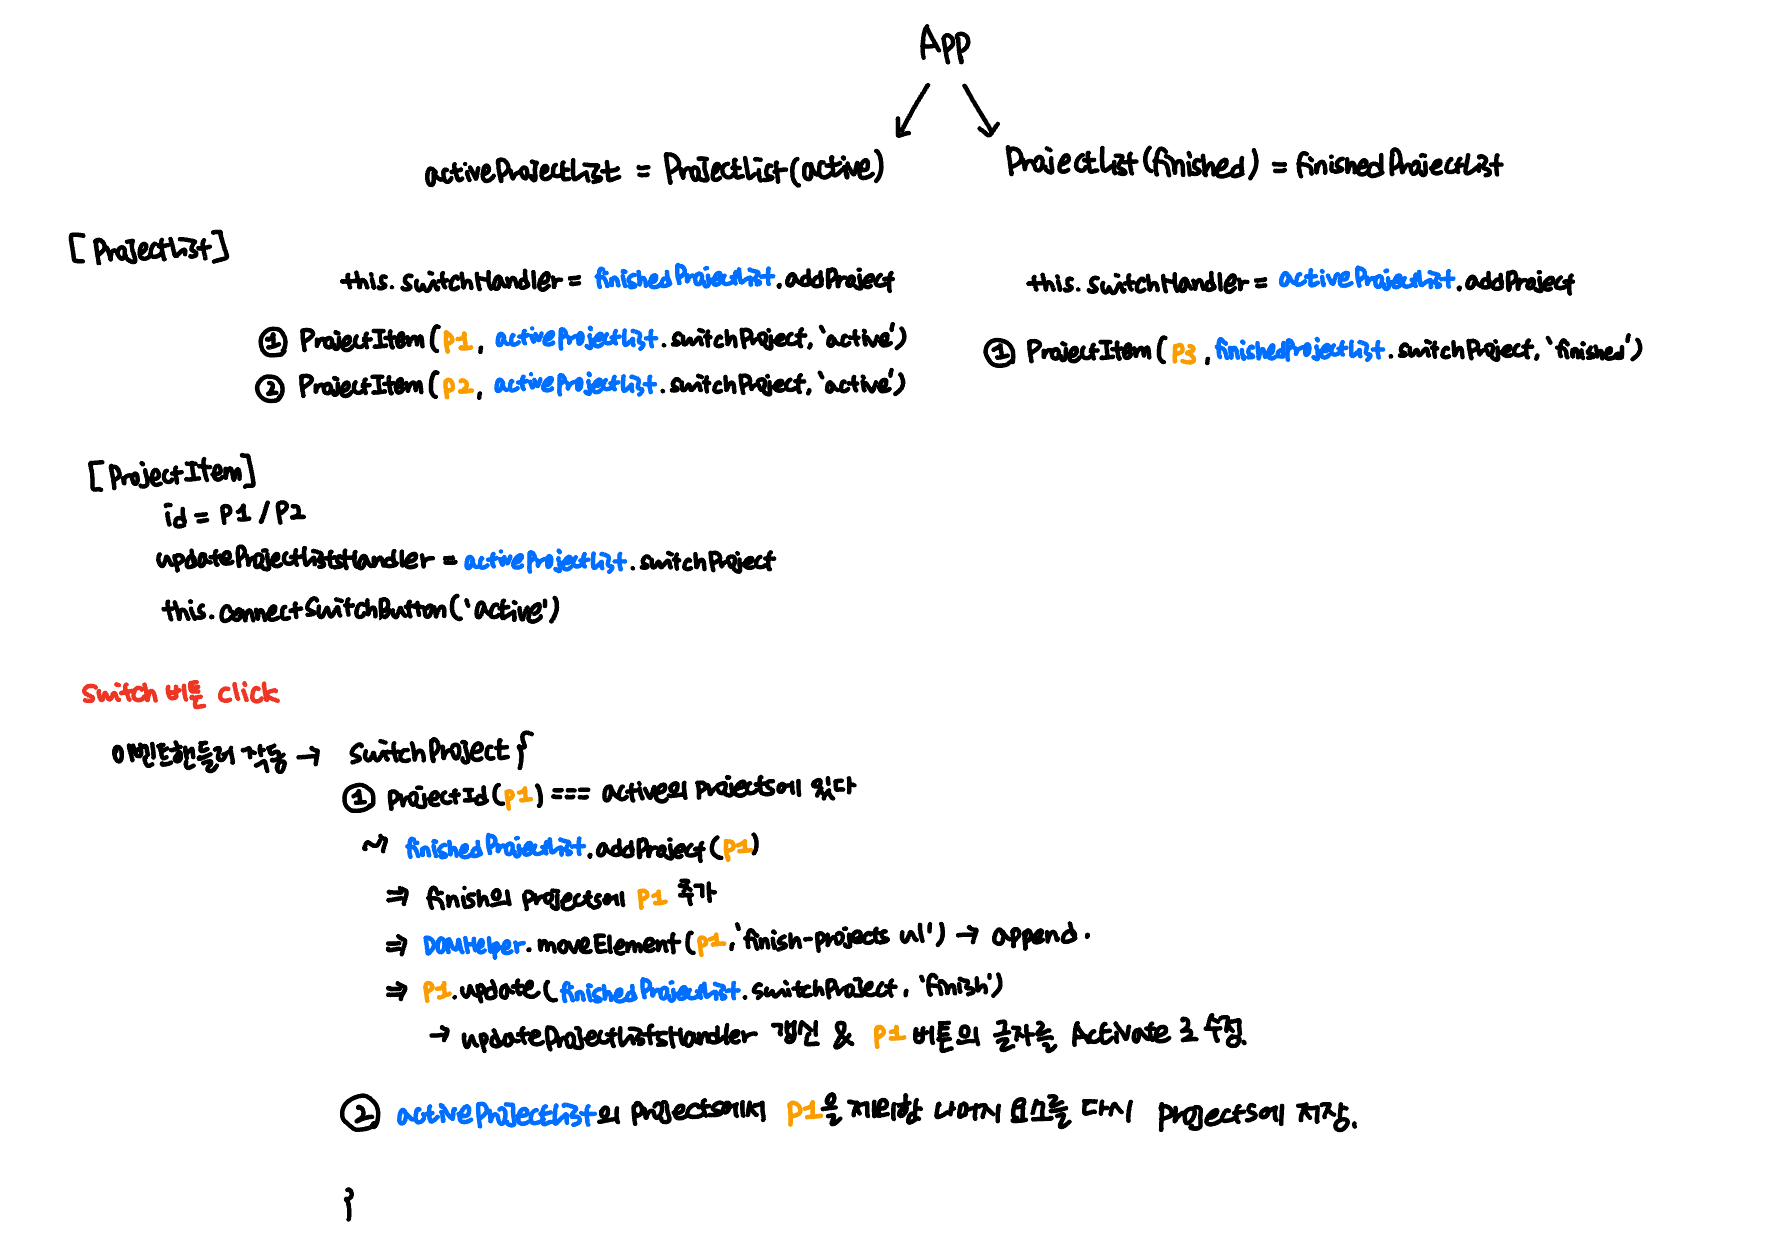 App
activeProjectList = ProjectList(active)
ProjectList(finished) = finishedProjectList
[ProjectList]
this.switchHandler = finishedProjectList.addProject
① ProjectItem(p1, activeProjectList.switchProject, 'active')
② ProjectItem(p2, activeProjectList.switchProject, 'active')
this.switchHandler = activeProjectList.addProject
① ProjectItem(p3, finishedProjectList.switchProject, 'finished')
[ProjectItem]
id = P1 / P2
updateProjectListsHandler = activeProjectList.switchProject
this.connectSwitchButton('active')
Switch 버튼 click
이벤트핸들러 작동 → switchProject {
① projectId(p1) === active의 projects에 있다
~> finishedProjectList.addProject(p1)
⇒ finish의 projects에 p1 추가
⇒ DOMHelper.moveElement(p1, 'finish-projects ul') → append.
⇒ p1.update(finishedProjectList.switchProject, 'finish')
→ updateProjectListsHandler 갱신 & p1 버튼의 글자를 Activate로 수정.
② activeProjectList의 projects에서 p1을 제외한 나머지 요소를 다시 projects에 저장.
}